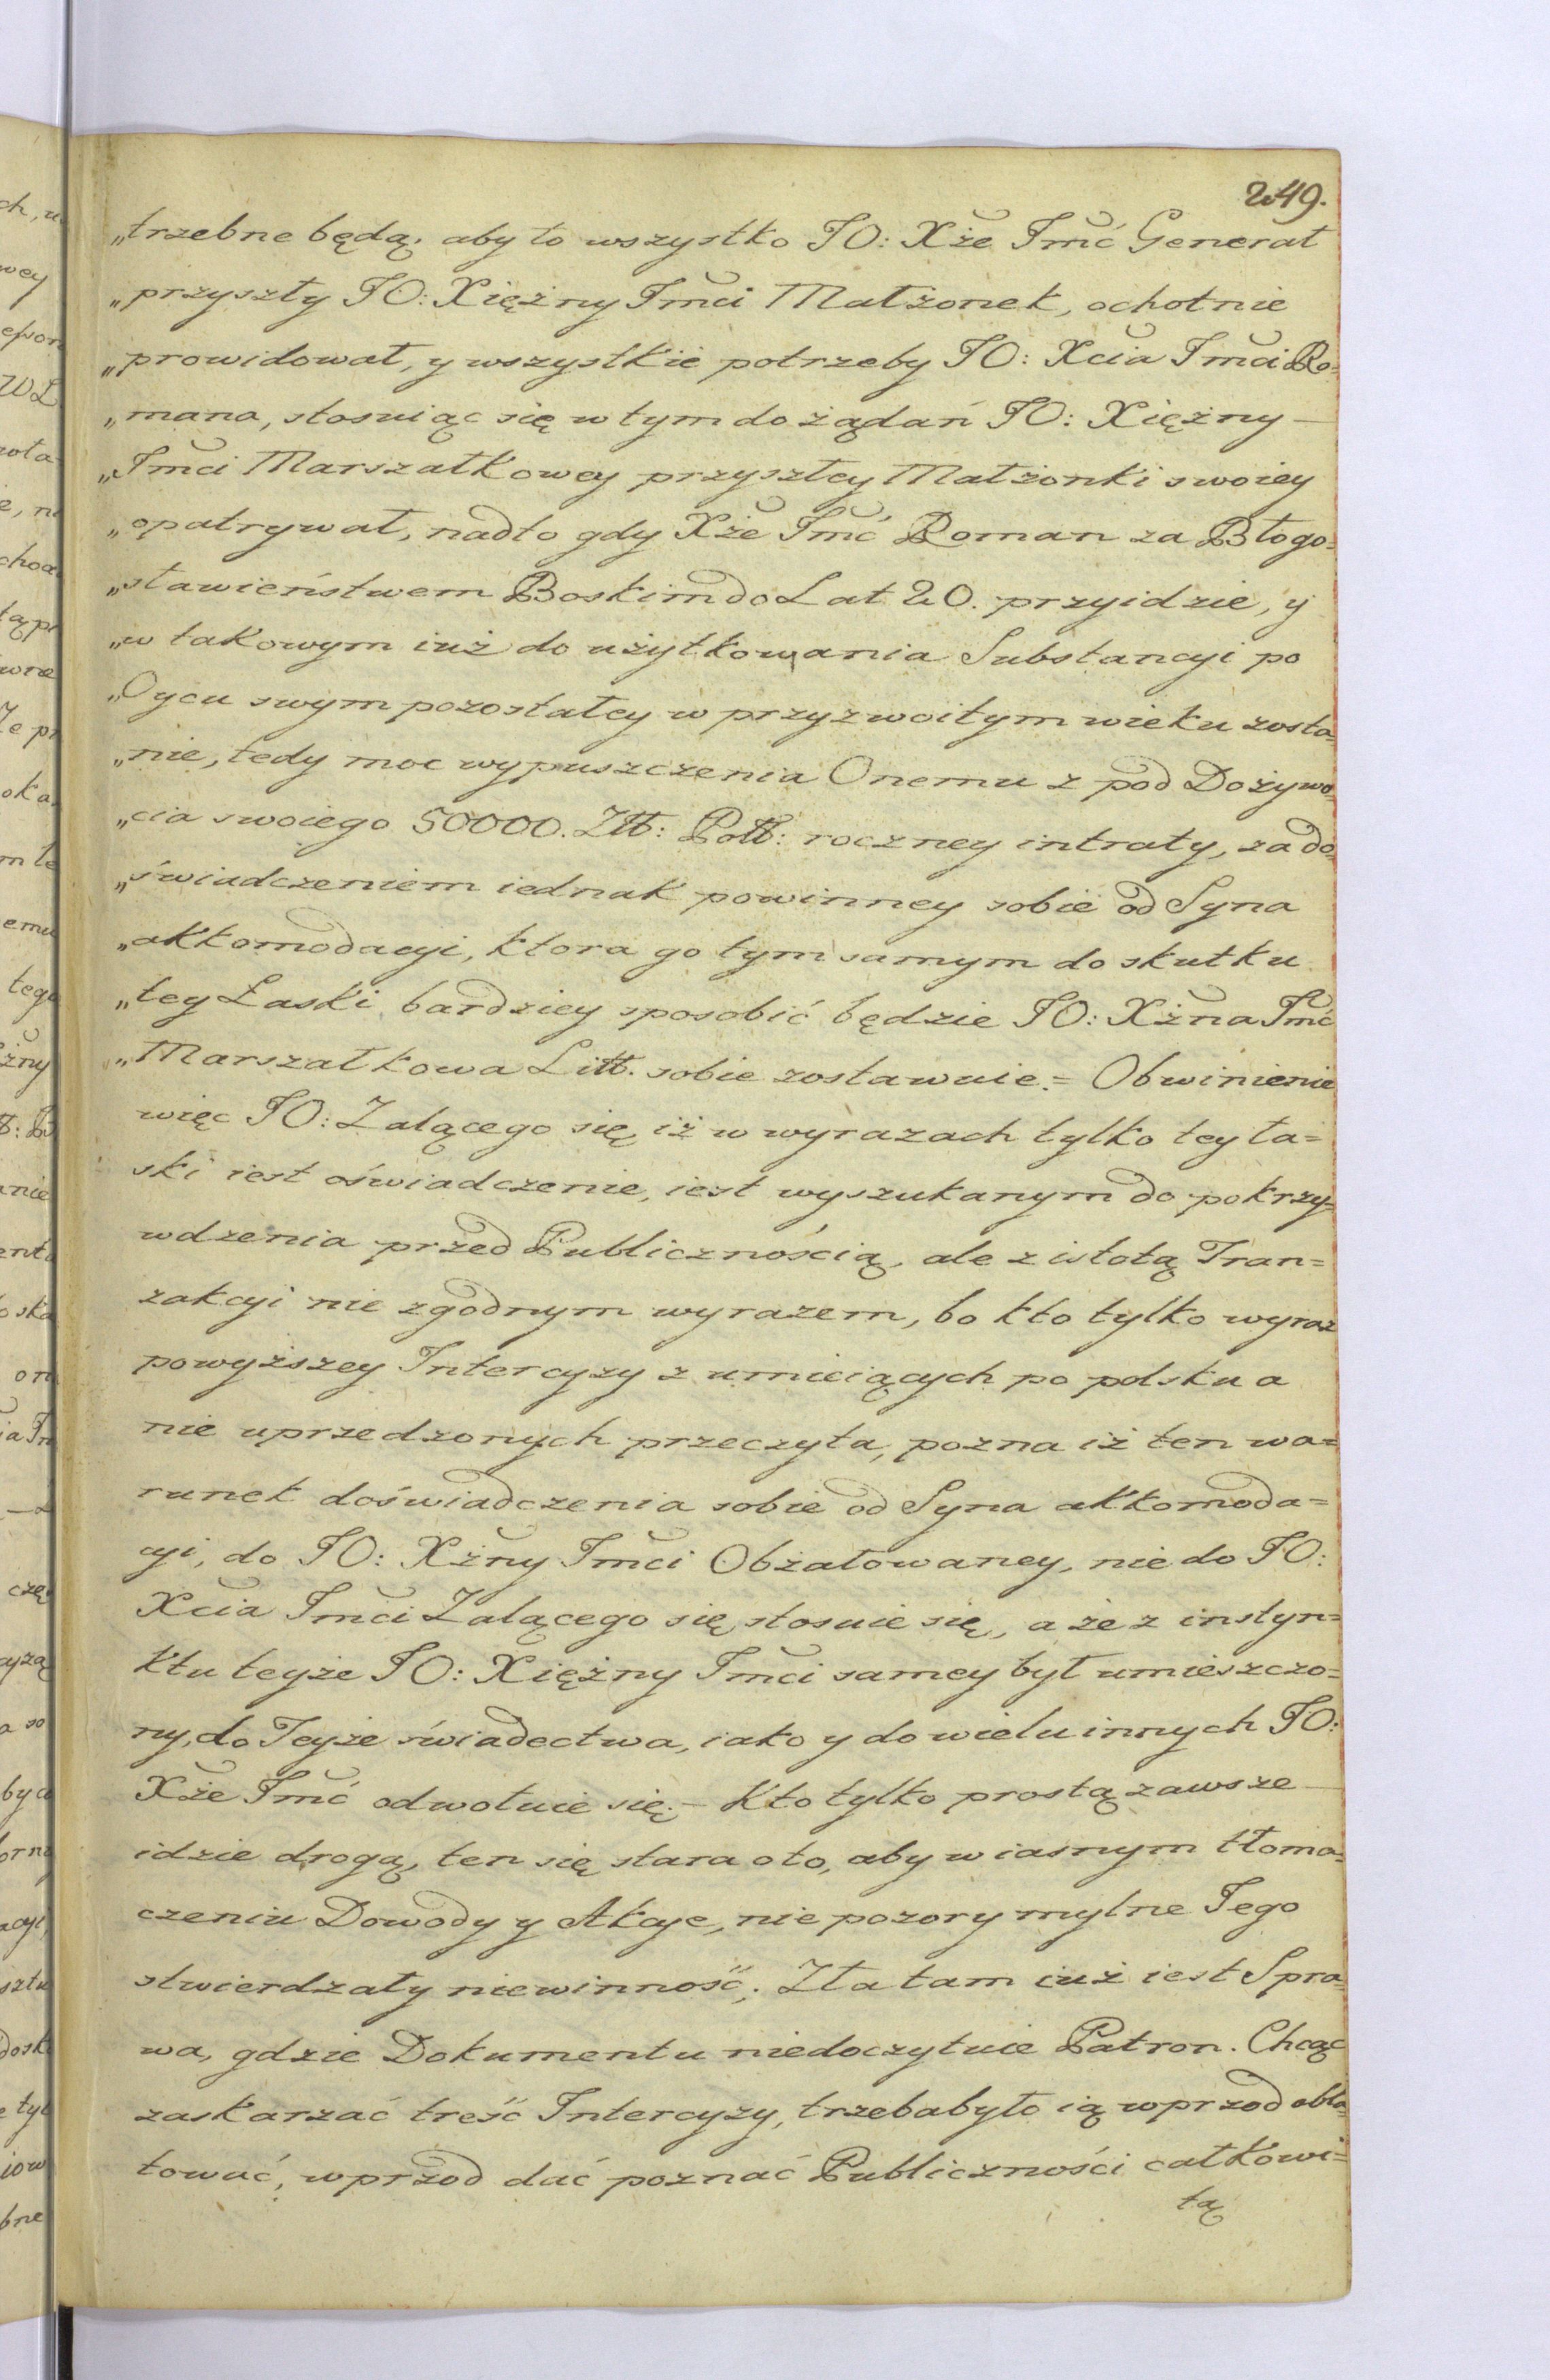 249.
„trzebne będą; aby to wszystko JO: Xże Jmć Generał
„przyszły JO: Xiężny Jmci Małżonek, ochotnie
„prowidował, y wszystkie potrzeby JO: Xcia Jmci Ro=
„mana, stosuiąc się w tym do żądań JO: Xiężny —
„Jmci Marszałkowey przyszłey Małżonki swoiey
„opatrywał, nadto gdy Xże Jmć Roman za Błogo=
„sławieństwem Boskim do Lat 20. przyidzie, y
„w takowym iuż do użytkowania Substancyi po
„Oycu swym pozostałey w przyzwoitym wieku zosta=
„nie, tedy moc wypuszczenia Onemu z pod Dożywo=
„cia swoiego 50000. Złł: Poll: roczney intraty, za do=
„świadczeniem iednak powinney sobie od Syna
„akkomodacyi, ktora go tym samym do skutku
„tey Łaski bardziey sposobić będzie JO: Xżna Jmć
„Marszałkowa Litt. sobie zostawuie. = Obwinienie
więc JO: Żalącego się, iż w wyrazach tylko tey ła=
ski iest oświadczenie, iest wyszukanym do pokrzy=
wdzenia przed Publicznością, ale z istotą Tran=
zakcyi nie zgodnym wyrazem, bo kto tylko wyraz
powyższey Intercyzy z umieiących po polsku a
nie uprzedzonych przeczyta, pozna iż ten wa=
runek doświadczenia sobie od Syna akkomoda=
cyi, do JO: Xżny Jmci Obżałowaney, nie do JO:
Xcia Jmci Żalącego się stosuie się, a że z instyn=
ktu teyże JO: Xiężny Jmci samey był umieszczo=
ny, do Teyże świadectwa, iako y do wielu innych JO:
Xże Jmć odwołuie się; — Kto tylko prostą zawsze —
idzie drogą, ten się stara oto, aby w iasnym tłoma=
czeniu Dowody y Akcye, nie pozory mylne Jego
stwierdzały niewinność; Zła tam iuż iest Spra=
wa, gdzie Dokumentu niedoczytuie Patron. Chcąc
zaskarzać treść Intercyzy, trzebabyło ią wprzod obla=
tować, wprzod dać poznać Publiczności całkowi=
tą